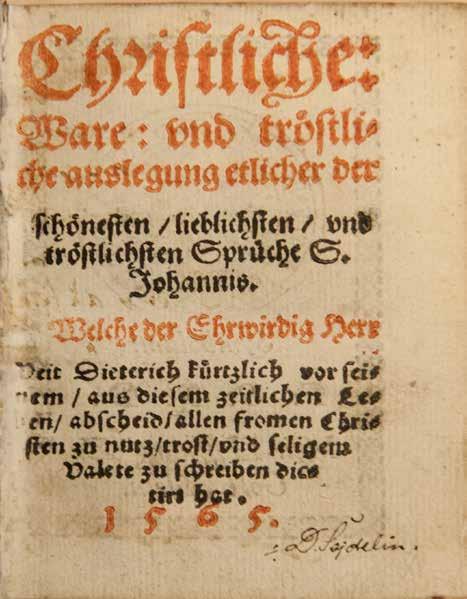 Christliche:
Ware: vnd tröstli-
che auslegung etlicher der
schönesten / lieblichsten / vnd
tröstlichsten Sprüche S.
Johannis.
Welche der Ehrwirdig Herr
Veit Dieterich kürtzlich vor sei-
nem / aus diesem zeitlichen Le-
en / abscheid / allen fromen Chri-
sten zu nutz / trost / vnd seligem
Valete zu schreiben dic-
tirt hat.
1565.
D. Sejdelin.